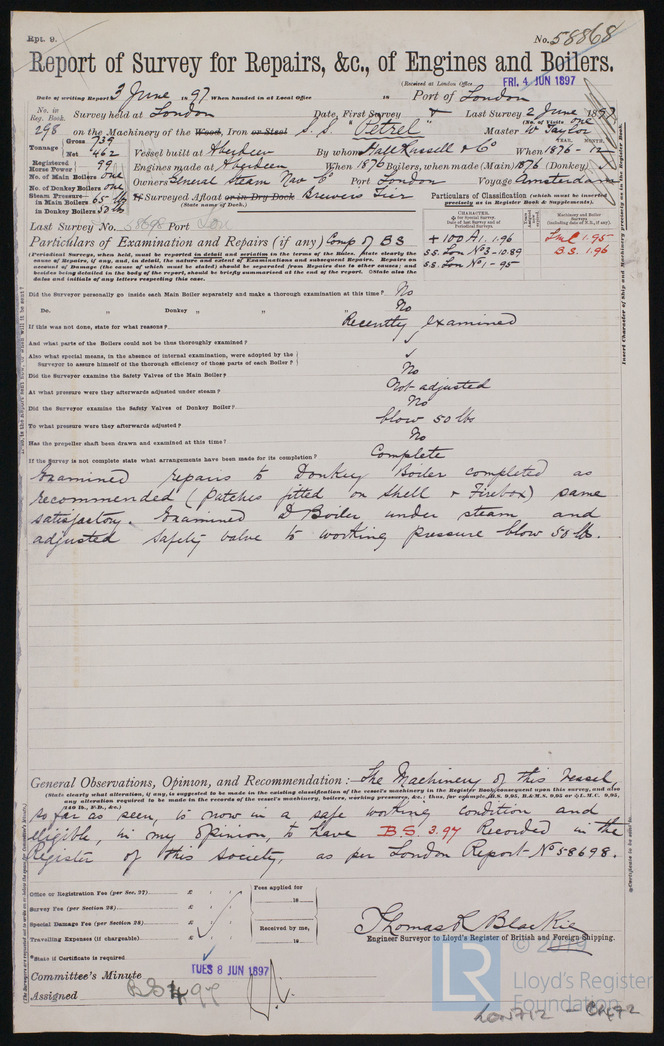 Rpt. 9.
No. 58868
Report of Survey for Repairs, &c., of Engines and Boilers.
(Received at London Office FRI. 4 JUN 1897
Date of writing Report 3 June 1897 When handed in at Local Office 18 Port of London
No. in Reg. Book. Survey held at London Date, First Survey Last Survey 2 June 1897
(No. of Visits one
298 on the Machinery of the Wood, Iron or Steel S.S. "Petrel" Master W Taylor
Tonnage Gross 739 Net 462
Vessel built at Aberdeen By whom Hall Russell & Co When 1876 - 12
YEAR. MONTH.
Registered Horse Power 99
Engines made at Aberdeen When 1876 Boilers, when made (Main) 1876 (Donkey)
No. of Main Boilers one
No. of Donkey Boilers one
Owners General Steam Nav Co Port London Voyage Amsterdam
Steam Pressure in Main Boilers 65 lb
in Donkey Boilers 50 lbs
If Surveyed Afloat or in Dry Dock Brewers Tier
(State name of Dock.)
Particulars of Classification (which must be inserted precisely as in Register Book & Supplements).
Last Survey No. 58698 Port Lon
CHARACTER.
Machinery and Boiler Surveys
+ 100 A1. 1.96
S.S. Lon No 3 - 10.89
S.S. Lon No 1 - 95
LMC 1.95
B.S. 1.96
Particulars of Examination and Repairs (if any) Comp of BS
(Periodical Surveys, when held, must be reported in detail and seriatim in the terms of the Rules. State clearly the
cause of Repairs, if any, and, in detail, the nature and extent of Examinations and subsequent Repairs. Repairs on
account of Damage (the cause of which must be stated) should be separated from Repairs due to other causes; and
besides being detailed in the body of the report, should be briefly summarised at the end of the report. State also the
dates and initials of any letters respecting this case.
Did the Surveyor personally go inside each Main Boiler separately and make a thorough examination at this time? No
Do. " Donkey " " " No
If this was not done, state for what reasons? Recently examined
And what parts of the Boilers could not be thus thoroughly examined?
Also what special means, in the absence of internal examination, were adopted by the
Surveyor to assure himself of the thorough efficiency of these parts of each Boiler?
Did the Surveyor examine the Safety Valves of the Main Boiler? No
At what pressure were they afterwards adjusted under steam? Not adjusted
Did the Surveyor examine the Safety Valves of Donkey Boiler? No
To what pressure were they afterwards adjusted? blow 50 lbs
Has the propeller shaft been drawn and examined at this time? No
If the Survey is not complete state what arrangements have been made for its completion? Complete
Examined repairs to Donkey Boiler completed as
recommended (Patches fitted on Shell & Firebox) same
satisfactory. Examined D Boiler under steam and
adjusted safety valve to working pressure blow 50 lb.
General Observations, Opinion, and Recommendation:— The Machinery of this Vessel,
(State clearly what alteration, if any, is suggested to be made in the existing classification of the vessel's machinery in the Register Book, consequent upon this survey, and also
any alteration required to be made in the records of the vessel's machinery, boilers, working pressures, &c.: thus, for example, B.S. 9,95, B.&M.S. 9,95 or L.M.C. 9,95,
140 lb., F.D., &c.)
so far as seen, is now in a safe working condition and
eligible, in my opinion, to have B.S. 3.97 Recorded in the
Register of this Society, as per London Report No 58698.
Office or Registration Fee (per Sec. 27) £
Survey Fee (per Section 28) £
Special Damage Fee (per Section 28) £
Travelling Expenses (if chargeable) £
Fees applied for
18
Received by me,
18
Thomas R Blackie
Engineer Surveyor to Lloyd's Register of British and Foreign Shipping.
*State if Certificate is required
TUES 8 JUN 1897
Committee's Minute
Assigned BS 4 97
© 2019
LR
Lloyd's Register
Foundation
LON712 - 0472
Insert Character of Ship and Machinery precisely as in the Register Book.